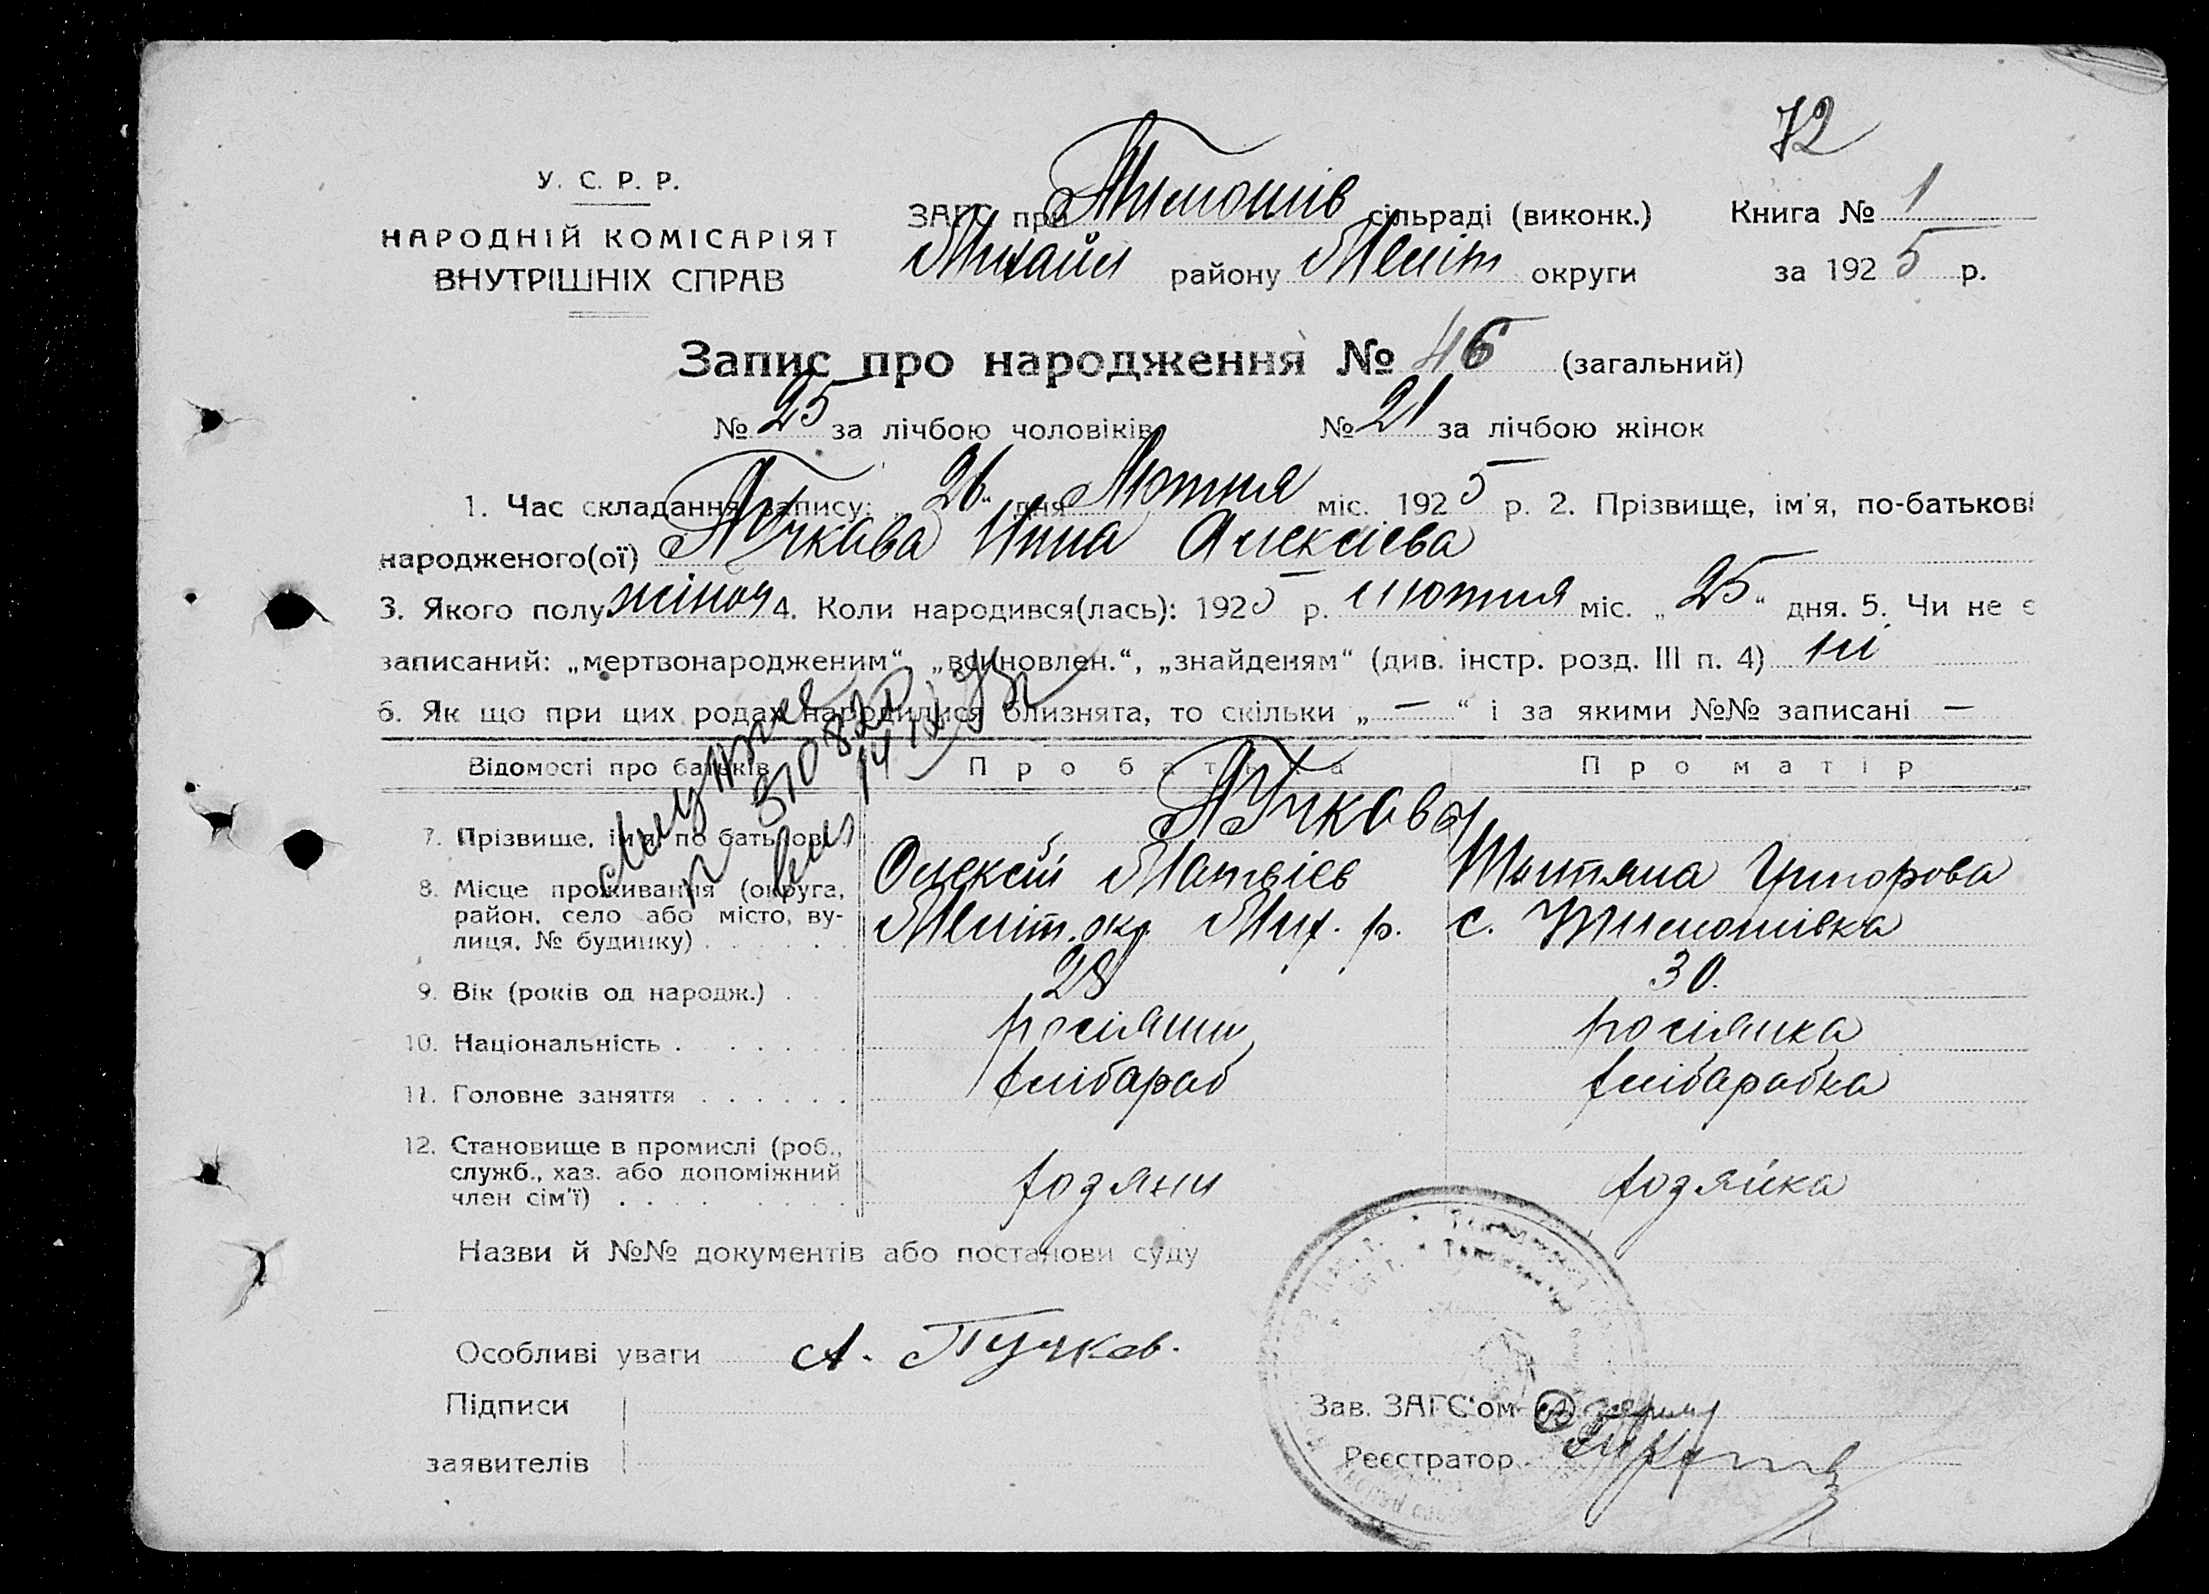 72
У. С. Р. Р.
НАРОДНІЙ КОМІСАРІЯТ
ВНУТРІШНІХ СПРАВ
ЗАГС при Тимошів сільраді (виконк.) Книга № 1
Михайл району Меліт округи за 1925 р.
Запис про народження № 46 (загальний)
№ 25 за лічбою чоловіків № 21 за лічбою жінок
1. Час складання запису: „26“ дня Лютня міс. 1925 р. 2. Прізвище, ім'я, по-батькові
народженого(ої) Пучкова Нина Алексієва
3. Якого полу жіноч 4. Коли народився(лась): 1925 р. лютня міс. „25“ дня. 5. Чи не є
записаний: „мертвонародженим“, „всиновлен.“, „знайденям“ (див. інстр. розд. III п. 4) ні
6. Як що при цих родах народилися близнята, то скільки „—“ і за якими №№ записані —
Відомості про батьків Про батька Про матір
7. Прізвище, ім'я, по батькові Пучкови
Олексій Матвієв Тытяна Григорова
8. Місце проживання (округа, район, село або місто, вулиця, № будинку) Меліт. окр Мих. р. с. Тимошивка
9. Вік (років од народж.) 28 30.
10. Національність росіянин росіянка
11. Головне заняття хлібароб хлібаробка
12. Становище в промислі (роб., служб., хаз. або допоміжний член сім'ї) хозяин хозяйка
Назви й №№ документів або постанови суду
Особливі уваги А. Пучков.
Підписи
заявителів
Зав. ЗАГС'ом
Реєстратор